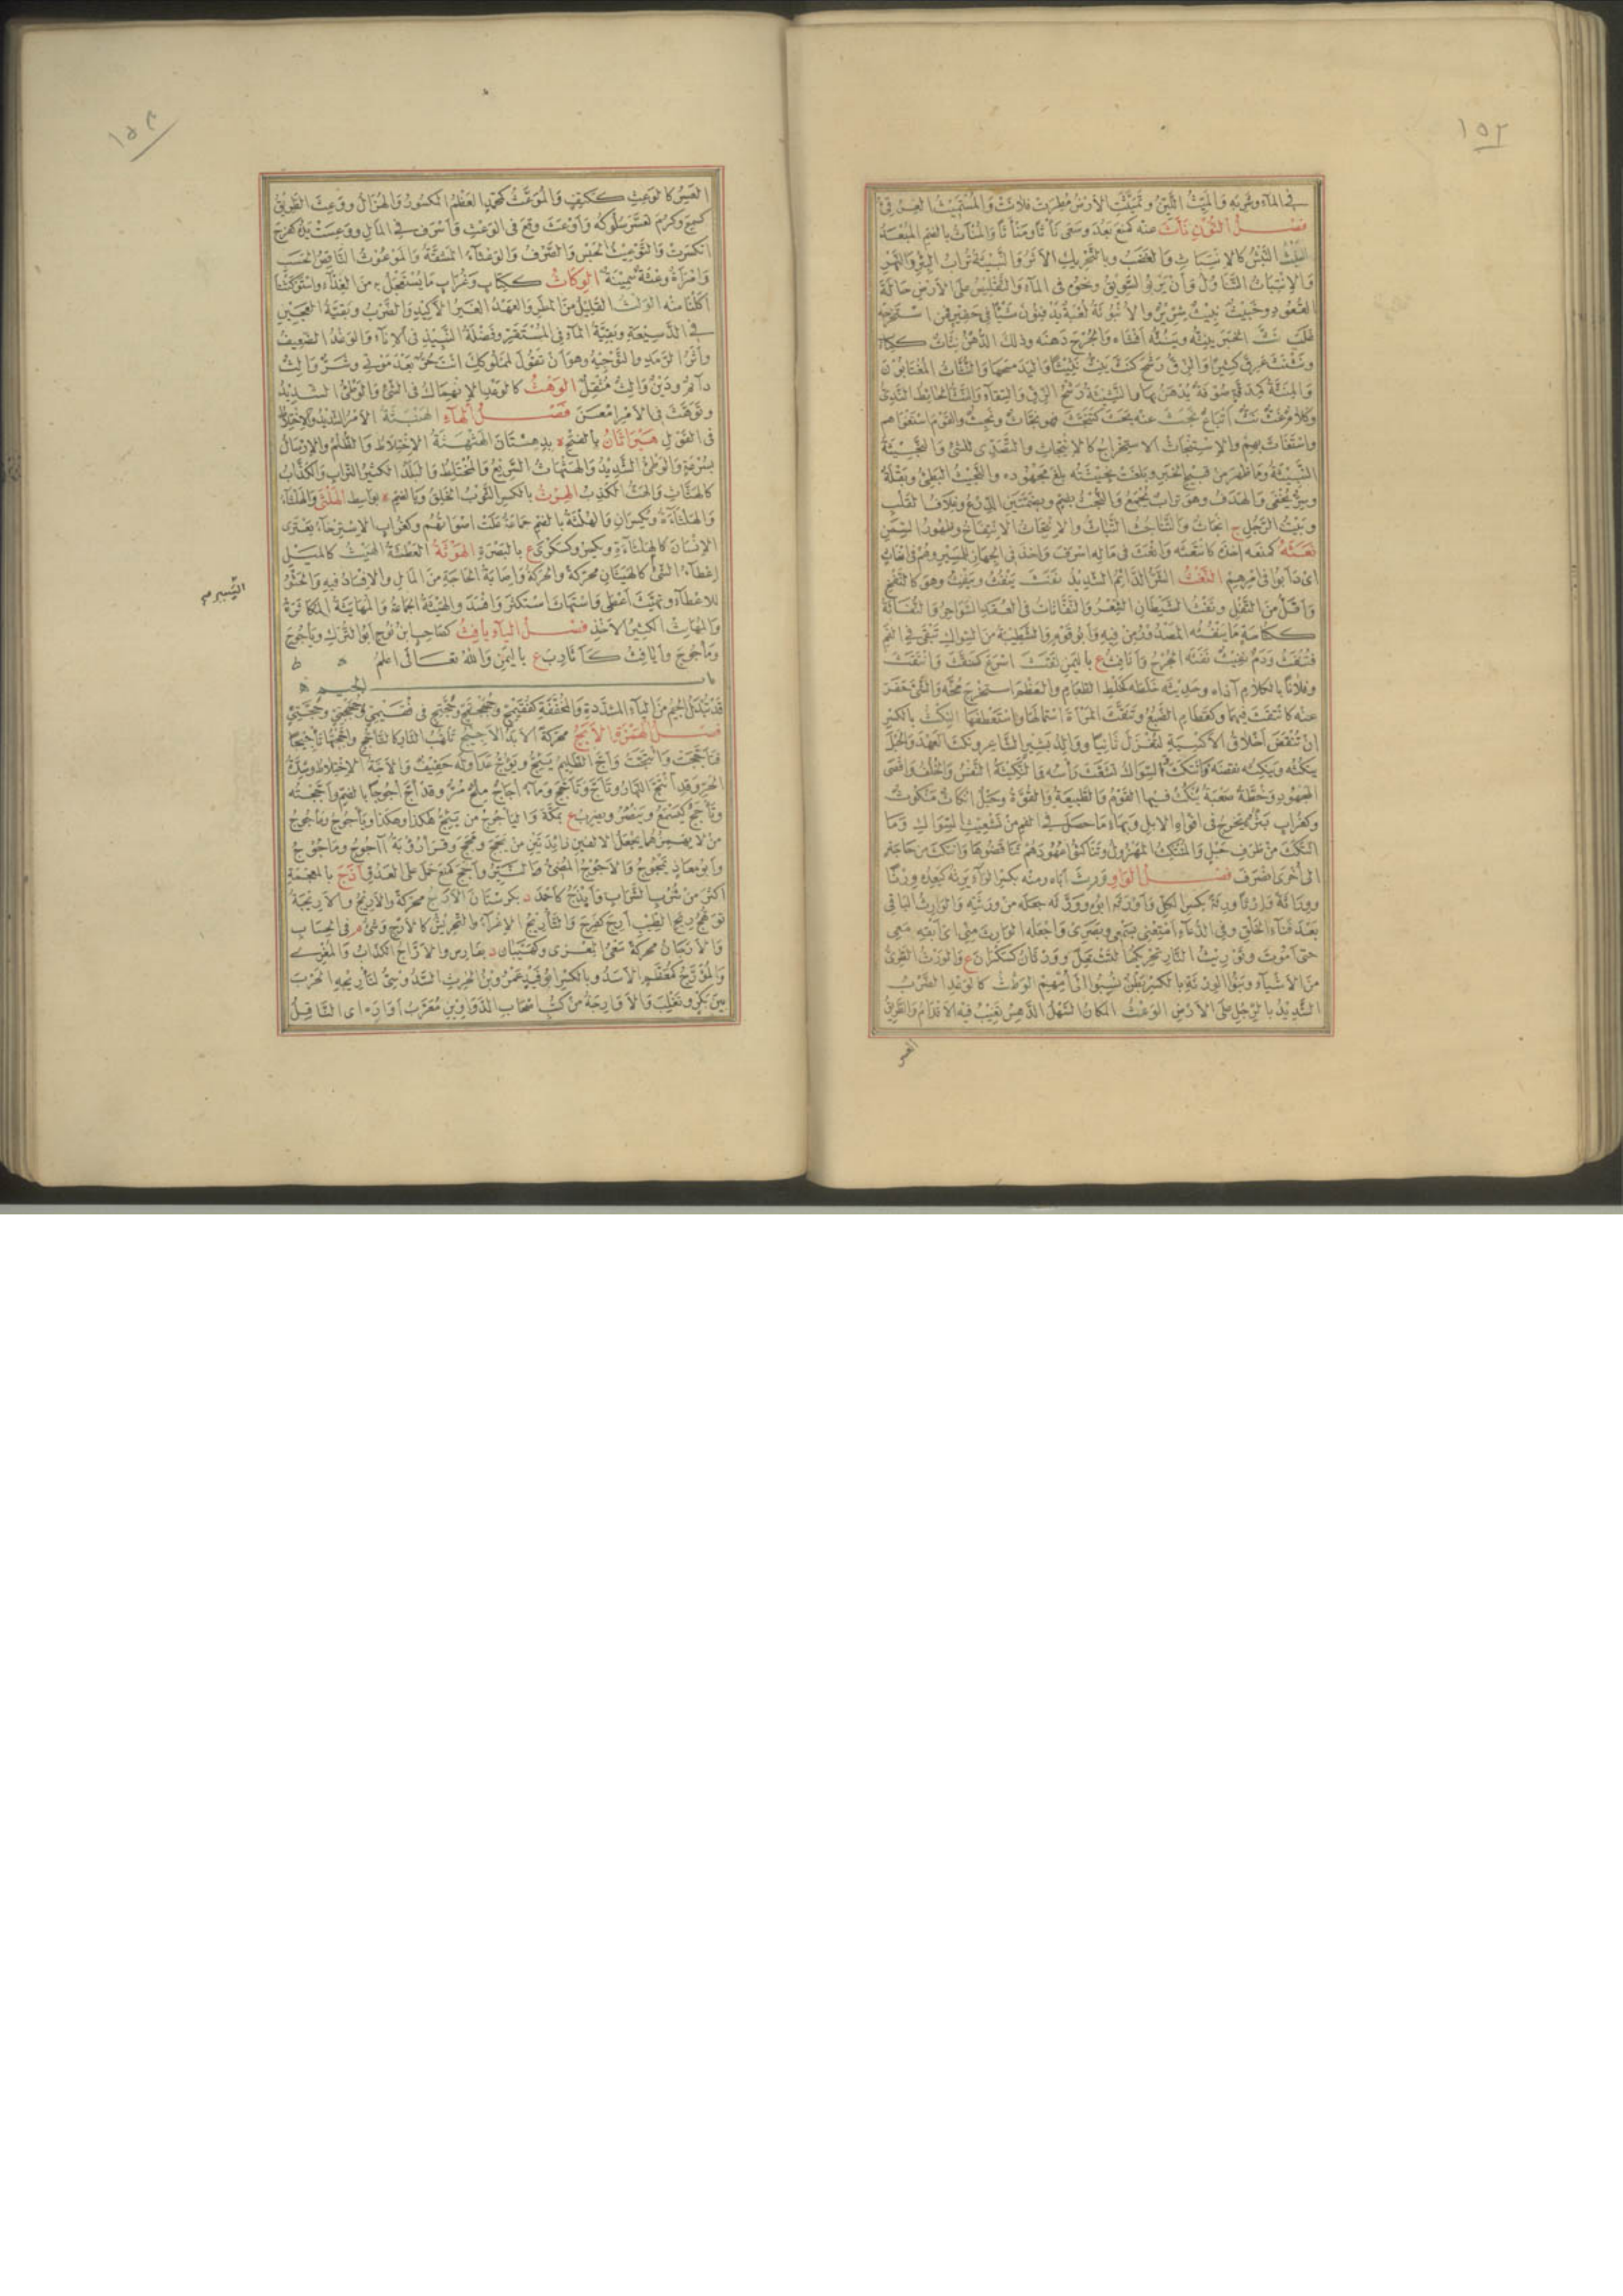 ١٥٢
في المآء وشربه والميث اللين وتميثت الارض مطرت فلانت والمستميث الغرقئ
فصــل النون نأث عنه كمنع بعد وسعى نأثا ومنأثا والمنأث بالضم المبعد
النبث النبش كالانتباث والغضب وبالتحريك الاثر والنبيثة تراب البئر والنهر
والانتباث التناول وان يربو السويق ونحوه في المآء والتقليص على الارض حالة
القعود وخبيث نبيث شرير والانبوثة لعبة يدفنون شيئا في حفير فمن استخرجه
غلب نث الخبر ينثه وينثه افشاه والجرح دهنه وذلك الدهن نثاث ككتاب
ونثنث عرق كثيرا والزق رشح كنث ينث نثيثا واليد مسحها والنثاث المغتابون
والمنثة صوفة يدهن بها والنثيثة رشح الزق والسقاء والنث الحائط الندى
وكلام غث نث اتباع نجث عنه بحث كتنجث فهو نجاث ونجث والقوم استغواهم
واستغاث بهم والاستنجاث الاستخراج كالانتجاث والتصدى للشئ والنجيثة
النبيثة وما ظهر من قبيح الخبر وبلغت نجيثته بلغ مجهوده والنجيث البطئ وبقلة
وسر يخفى والهدف وهو تراب يجمع والنجث بضم وبضمتين الدرع وغلاف القلب
وبيت الرجل ج انجاث والتناجث التباث والانتجاث الانتفاخ وظهور السمن
نعثه كمنعه اخذه كانتعثه وانعث في ماله اسرف واخذ في الجهاز للمسير وهم في انعاث
اى دأبوا في امرهم النغث الشر الدائم الشديد نفث ينفث وينفث وهو كالنفخ
واقل من التفل ونفث الشيطان الشعر والنفاثات في العقد السواحر والنفاثة
ككناسة ما ينفثه المصدور من فيه وابو قوم والشظيئة من السواك تبقى في الفم
فتنفث ودم نفيث نفثه الجرح وانافث ع باليمن نقث اسرع كنقث وانتقث
وفلانا بالكلام آذاه وحديثه خلطه كخلط الطعام والعظم استخرج مخه والشئ حفر
عنه كانتقث فيهما وكقطام الضبع وتنقث المرأة استمالها واستعطفها النكث بالكسر
ان تنقض اخلاق الاكسية لتغزل ثانيا ووالد بشير الشاعر ونكث العهد والحبل
ينكثه وينكثه نقضه فانتكث والسواك تشعث راسه والنكيثة النفس والخلف واقصى
المجهود وخطة صعبة ينكث فيها القوم والطبيعة والقوة وحبل انكاث منكوث
وكغراب بثر يخرج في افواه الابل وبهاء ما حصل في الفم من تشعيث السواك وما
انتكث من طرف حبل والمنتكث المهزول وتناكثوا عهودهم تناقضوها وانتكث من حاجة
الى اخرى انصرف فصــل الواو ورث اباه ومنه بكسر الرآء يرثه كيعده ورثا
ووراثة وارثا ورثة بكسر الكل واورثه ابوه وورثه جعله من ورثته والوارث الباقى
بعد فنآء الخلق وفي الدعآء امتعنى بسمعى وبصرى واجعله الوارث منى اى ابقه معى
حتى اموت وتوريث النار تحريكها لتشتعل وورثان كسكران ع والورث الطرى
من الاشيآء وبنوا الورثة بالكسر بطن نسبوا الى امهم الوطث كالوعد الضرب
الشديد بالرجل على الارض الوعث المكان السهل الدهس تغيب فيه الاقدام والطريق
العسر
١٥٣
العسر كالوعث ككتف والموعث كمحمد العظم المكسور والهزال ووعث الطريق
كسمع وكرم تعسر سلوكه واوعث وقع في الوعث واسرف في المال ووعثت يده كفرح
انكسرت والتوعيث الحبس والصرف والوعثآء المشقة والموعوث الناقص الحسب
وامرأة وعثة سمينة الوكاث ككتاب وغراب ما يستعجل به من الغذآء واستوكثنا
اكلنا منه الولث القليل من المطر والعهد الغير الاكيد والضرب وبقية العجين
في الدسيعة وبقية المآء في المشقر وفضلة النبيذ في الانآء والوعد الضعيف
واثر الرمد والتوجيه وهو ان تقول لمملوكك انت حر بعد موتى وشر والث
دآئم ودين والث مثقل الوهث كالوعد الانهماك في الشئ والوطئ الشديد
وتوهث في الامر امعن فصــل الهآء الهنبثة الامر الشديد والاختلاط
في القول هبراثان بالفتح ة بدهستان الهثهثة الاختلاط والظلم والارسال
بسرعة والوطئ الشديد والهثهاث السريع والمختلط والبلد الكثير التراب والكذاب
كالهثاث والهث الكذب الهرث بالكسر الثوب الخلق وبالضم ة بواسط الهلثى والهلثآء
والهلثآءة ويكسران والهلثة بالضم جماعة علت اصواتهم وكغراب الاسترخآء يعترى
الانسان كالهلثآءة ويكسر وكسكرى ع بالبصرة الهوثة العطشة الهيث كالميل
اعطآء الشئ كالهيثان محركة والحركة واصابة الحاجة من المال والافساد فيه والحثو
للاعطآء وتهيث اعطى واستهاث استكثر وافسد والهيثة الجماعة والمهايثة المكاثرة
والمهايث الكثير الاخذ فصــل اليآء يافث كصاحب ابن نوح ابو الترك وياجوج
وماجوج وايافث كاثارب ع باليمن والله تعــالى اعلم
باب الجيم
قد تبدل الجيم من اليآء المشددة والمخففة كفقيمج وحجتج في فقيمى وحجتى
فصــل الهمزة الابج محركة الابد الاجيج تلهب النار كالتأجج واججتها تاجيجا
فتأججت وائتجت واج الظليم يئج ويؤج عدا وله حفيف والاجة الاختلاط وشدة
الحر وقد ائتج النهار وتأج وتأجج ومآء اجاج ملح مر وقد اج اجوجا بالضم واججته
وياجج كيسمع وينصر ويضرب ع بمكة والياجوج من يئج هكذا وهكذا وياجوج وماجوج
من لا يهمزهما يجعل الالفين زائدتين من يجج ومجج وقرأ رؤبة آجوج وماجوج
وابو معاذ يمجوج والاجوج المضئ النــير واجج كمنع حمل على العدو أذج بالمعجمة
اكثر من شرب الشراب وايذج كاحمد د بكردستان الارج محركة والاريج والاريجة
توهج ريح الطيب ارج كفرح والتأريج الاغرآء والتحريش كالارج وشئ م في الحساب
والارجان محركة سعى المغرى وكهيبان د بفارس والاراج الكذاب والمغرى
والمؤرج كمعظم الاسد وبالكسر ابو فيد عمرو بن الحرث السدوسى لتأريجه الحرب
بين بكر وتغلب والاوارجة من كتب اصحاب الدواوين معرب اواره اى الناقل